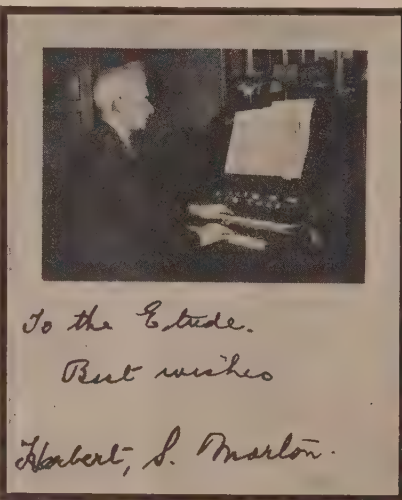 To the Etude.
Best wishes
Herbert, S. Morton.